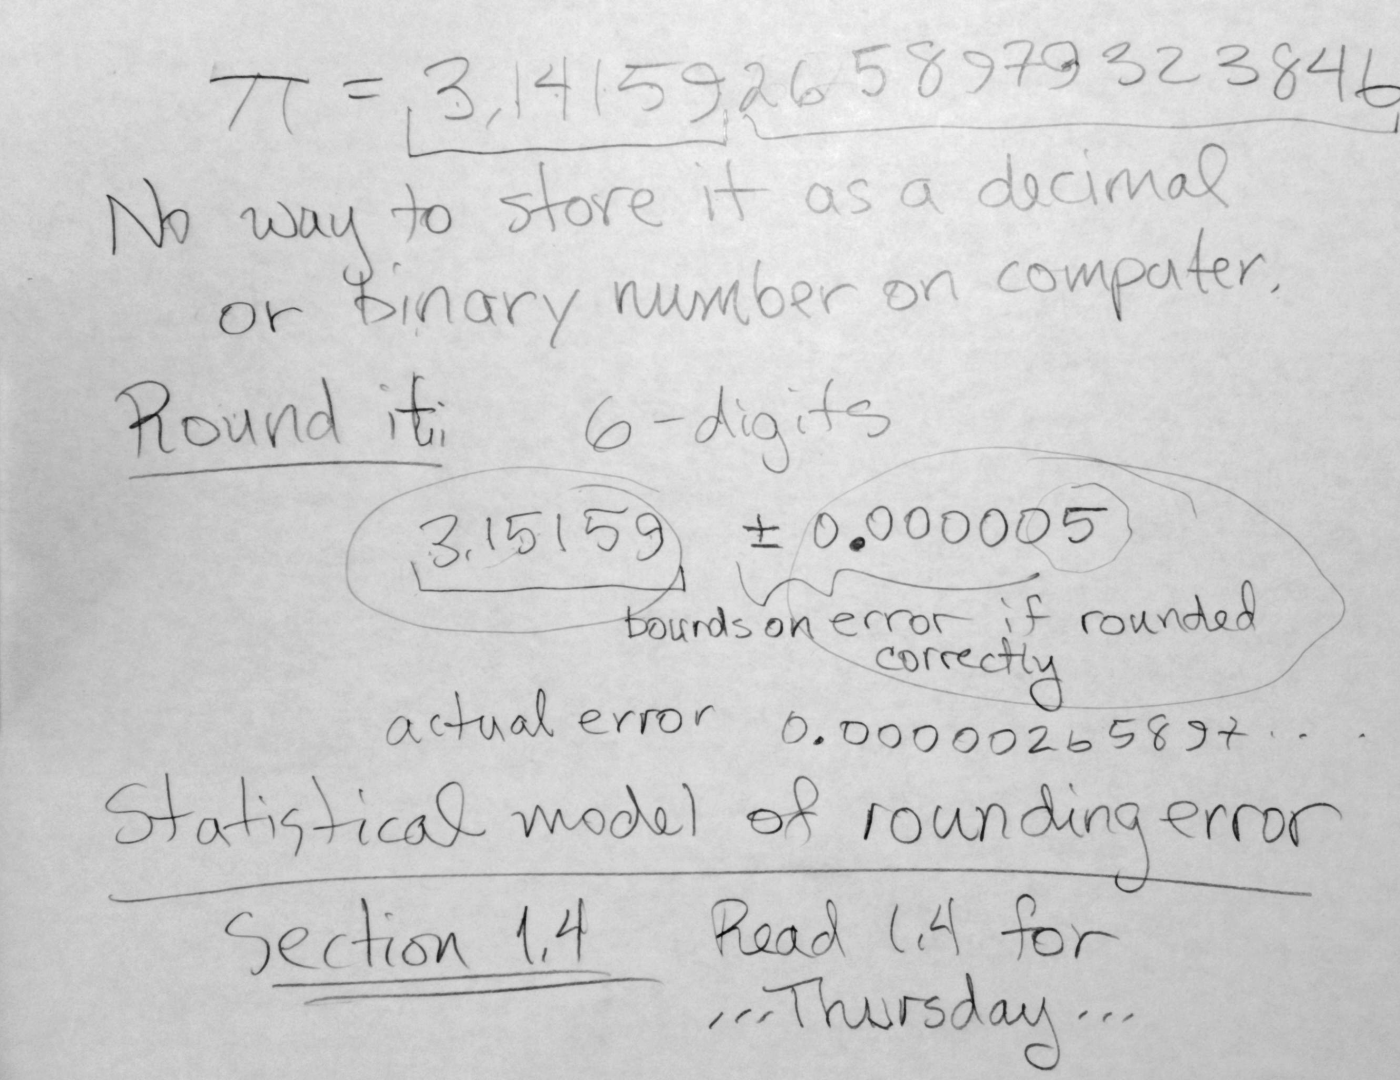 π = 3.14159265897932​3846
No way to store it as a decimal
or binary number on computer.
Round it: 6-digits
3.15159 ± 0.000005
bounds on error if rounded
correctly
actual error 0.00000265897....
Statistical model of rounding error
Section 1.4 Read 1.4 for
...Thursday...